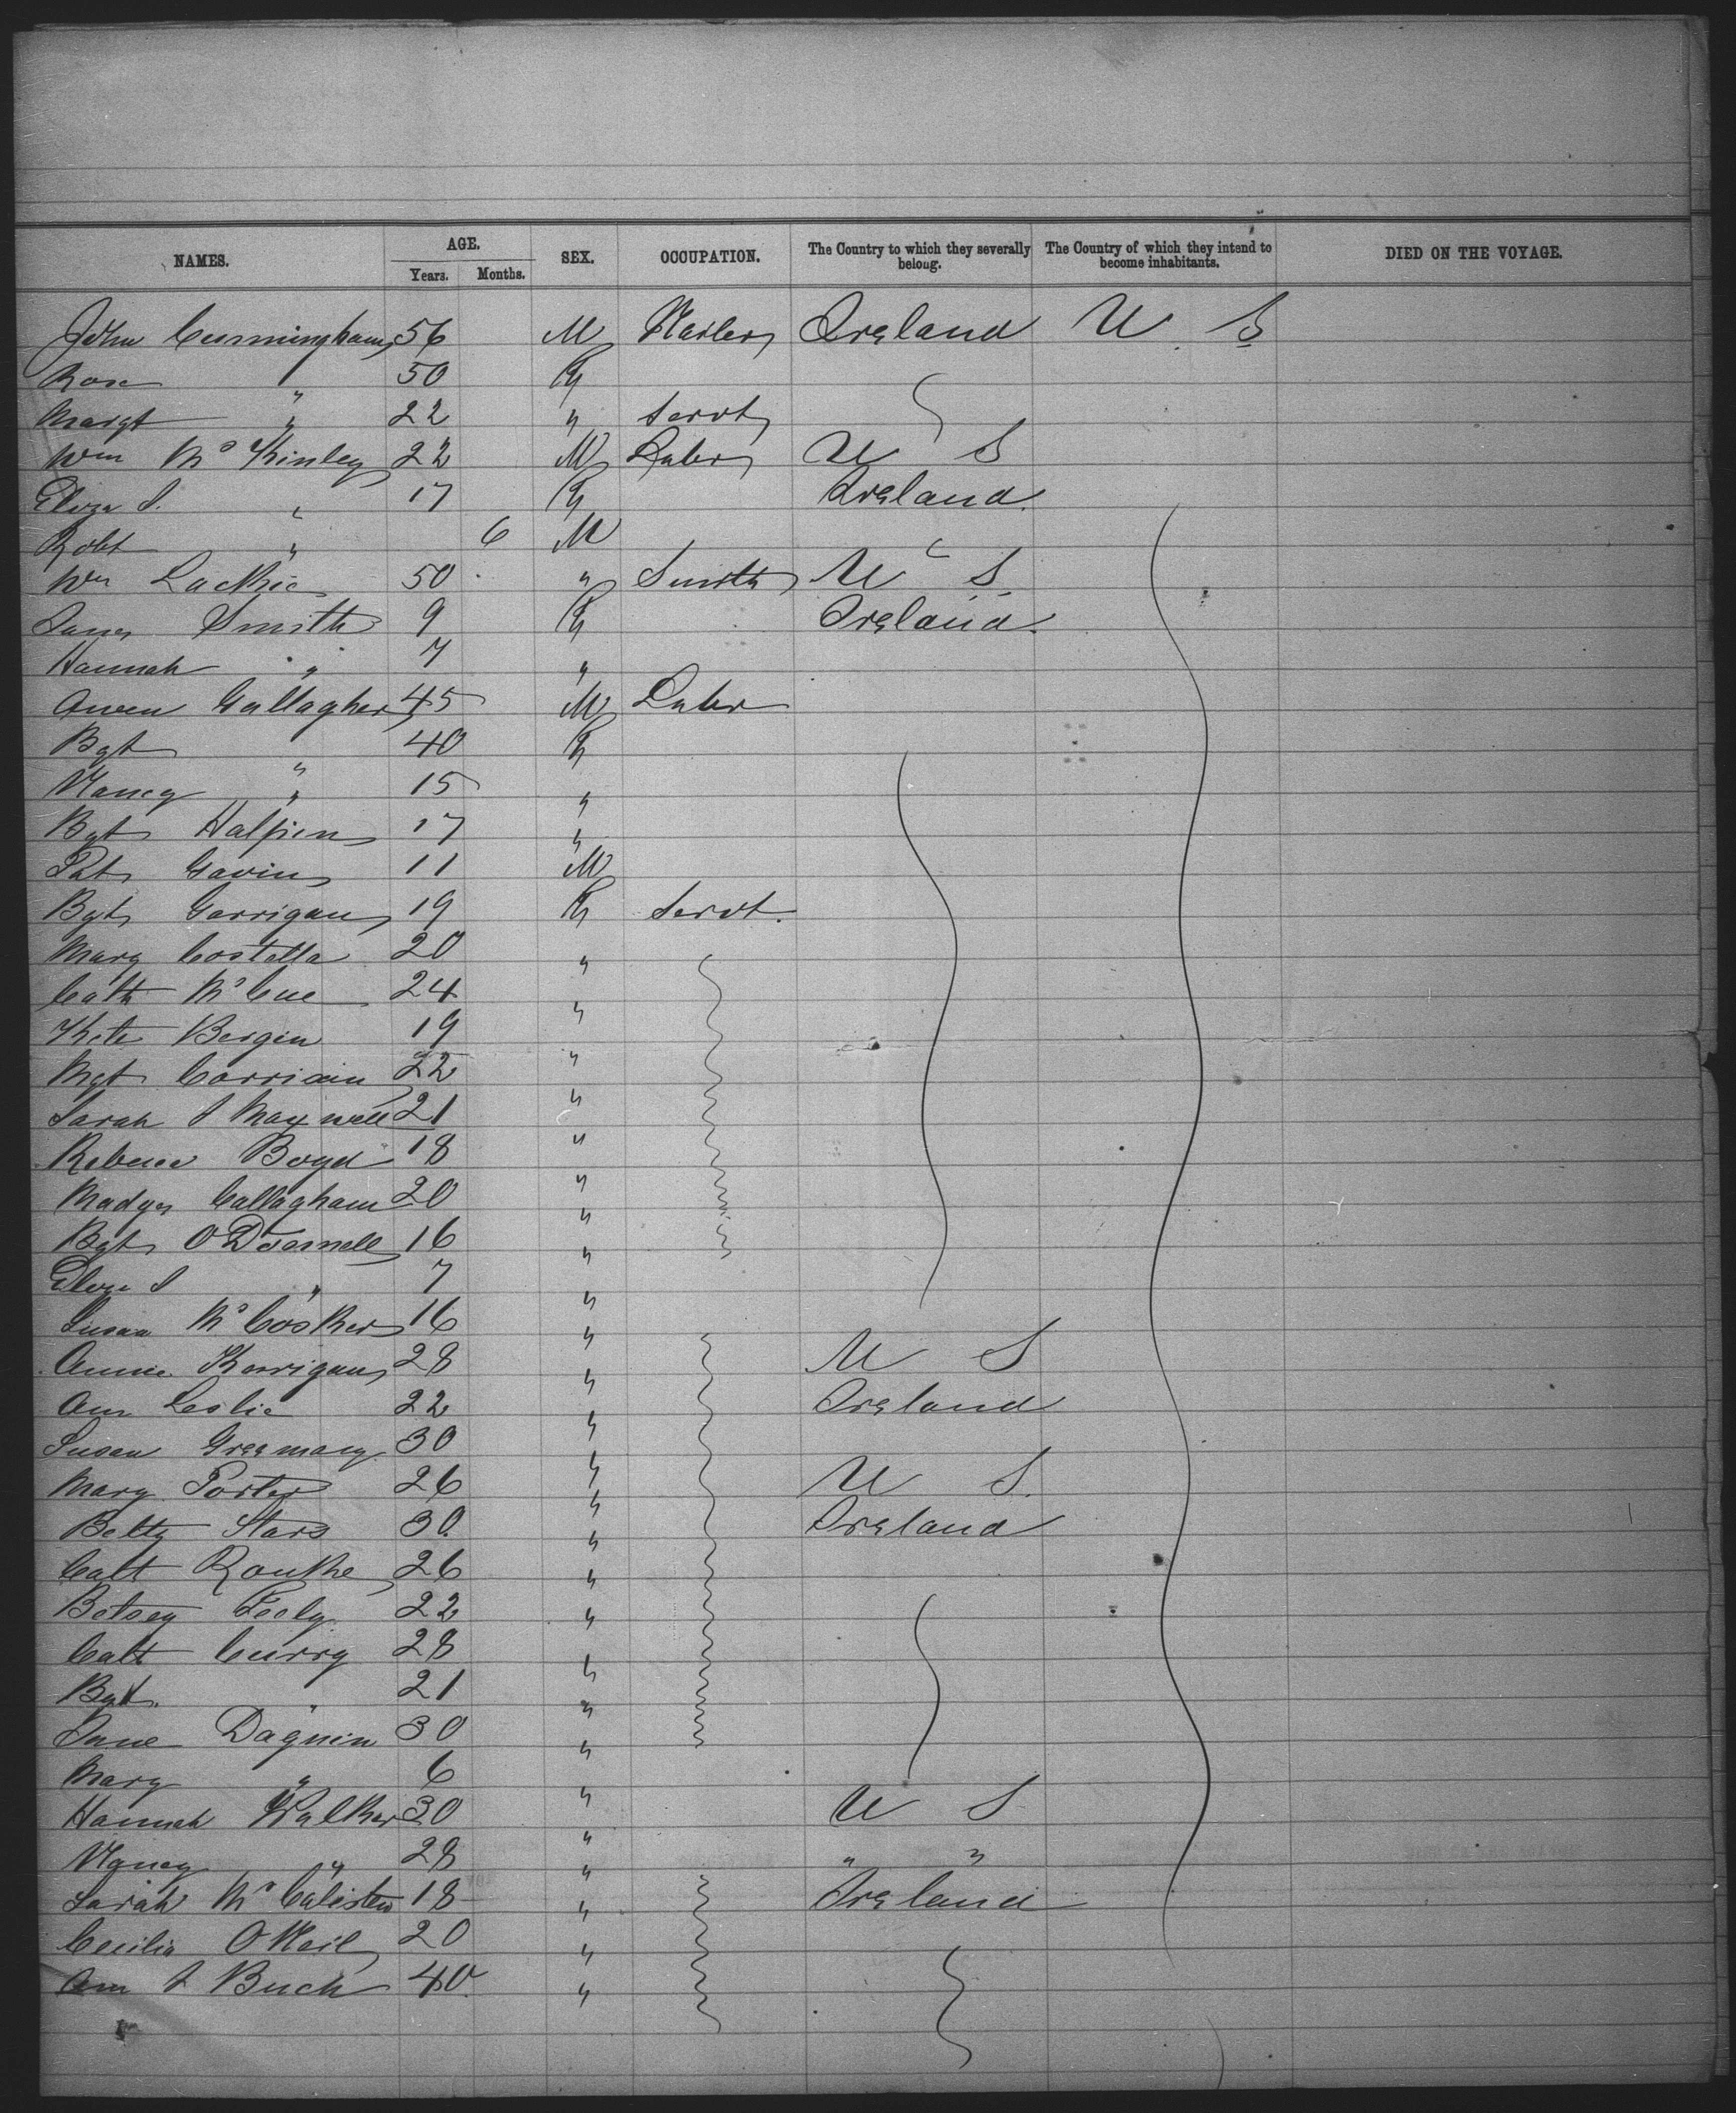 NAMES. AGE. SEX. OCCUPATION. The Country to which they severally belong. The Country of which they intend to become inhabitants. DIED ON THE VOYAGE.
Years. Months.
John Cunningham 56 M Ireland U S
Rose " 50 F
Margt " 22 " Servt
Wm McKinley 22 M Labr U S
Eliza J. " 17 F Ireland
Robt " 6 M
Wm Lackie 50 " Smith U S
James Smith 9 F Ireland
Hannah " 7 "
Owen Gallagher 45 M Labr
Bgt " 40 F
Nancy " 15 "
Bgt Halpien 17 "
Pat Gavin 11 M
Bgt Gerrigan 19 F Servt.
Mary Costella 20 "
Cath McCue 24 "
Kate Bergin 19 "
Mgt 22 "
Sarah J Maxwell 21 "
Rebecca Boyd 18 "
Madge Callagham 20 "
Bgt O'Doennell 16 "
Eliza J " 7 "
Susan McCosker 16 "
Annie Kerrigan 28 " U S
Ann Leslie 22 " Ireland
Susan 30 "
Mary Porter 26 " U S.
Betty Stars 30 " Ireland
Catt Rourke 26 "
Betsey Feely 22 "
Catt Curry 28 "
Bgt. " 21 "
Jane Dagnin 30 "
Mary " 6 "
Hannah Walker 30 " U S
Nancy " 28 " " "
Sarah McCalister 18 " Ireland
Cecilia O'Neil 20 "
Ann J Buck 40 "